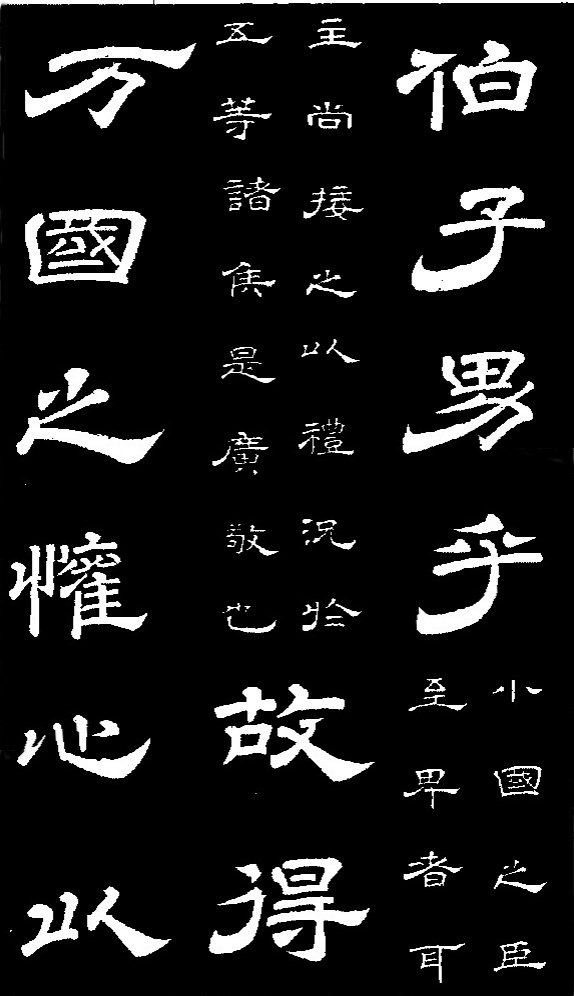 伯子男乎
小國之臣
至卑者耳
主尚接之以禮況於
五等諸侯是廣敬也
故得
万國之懽心以